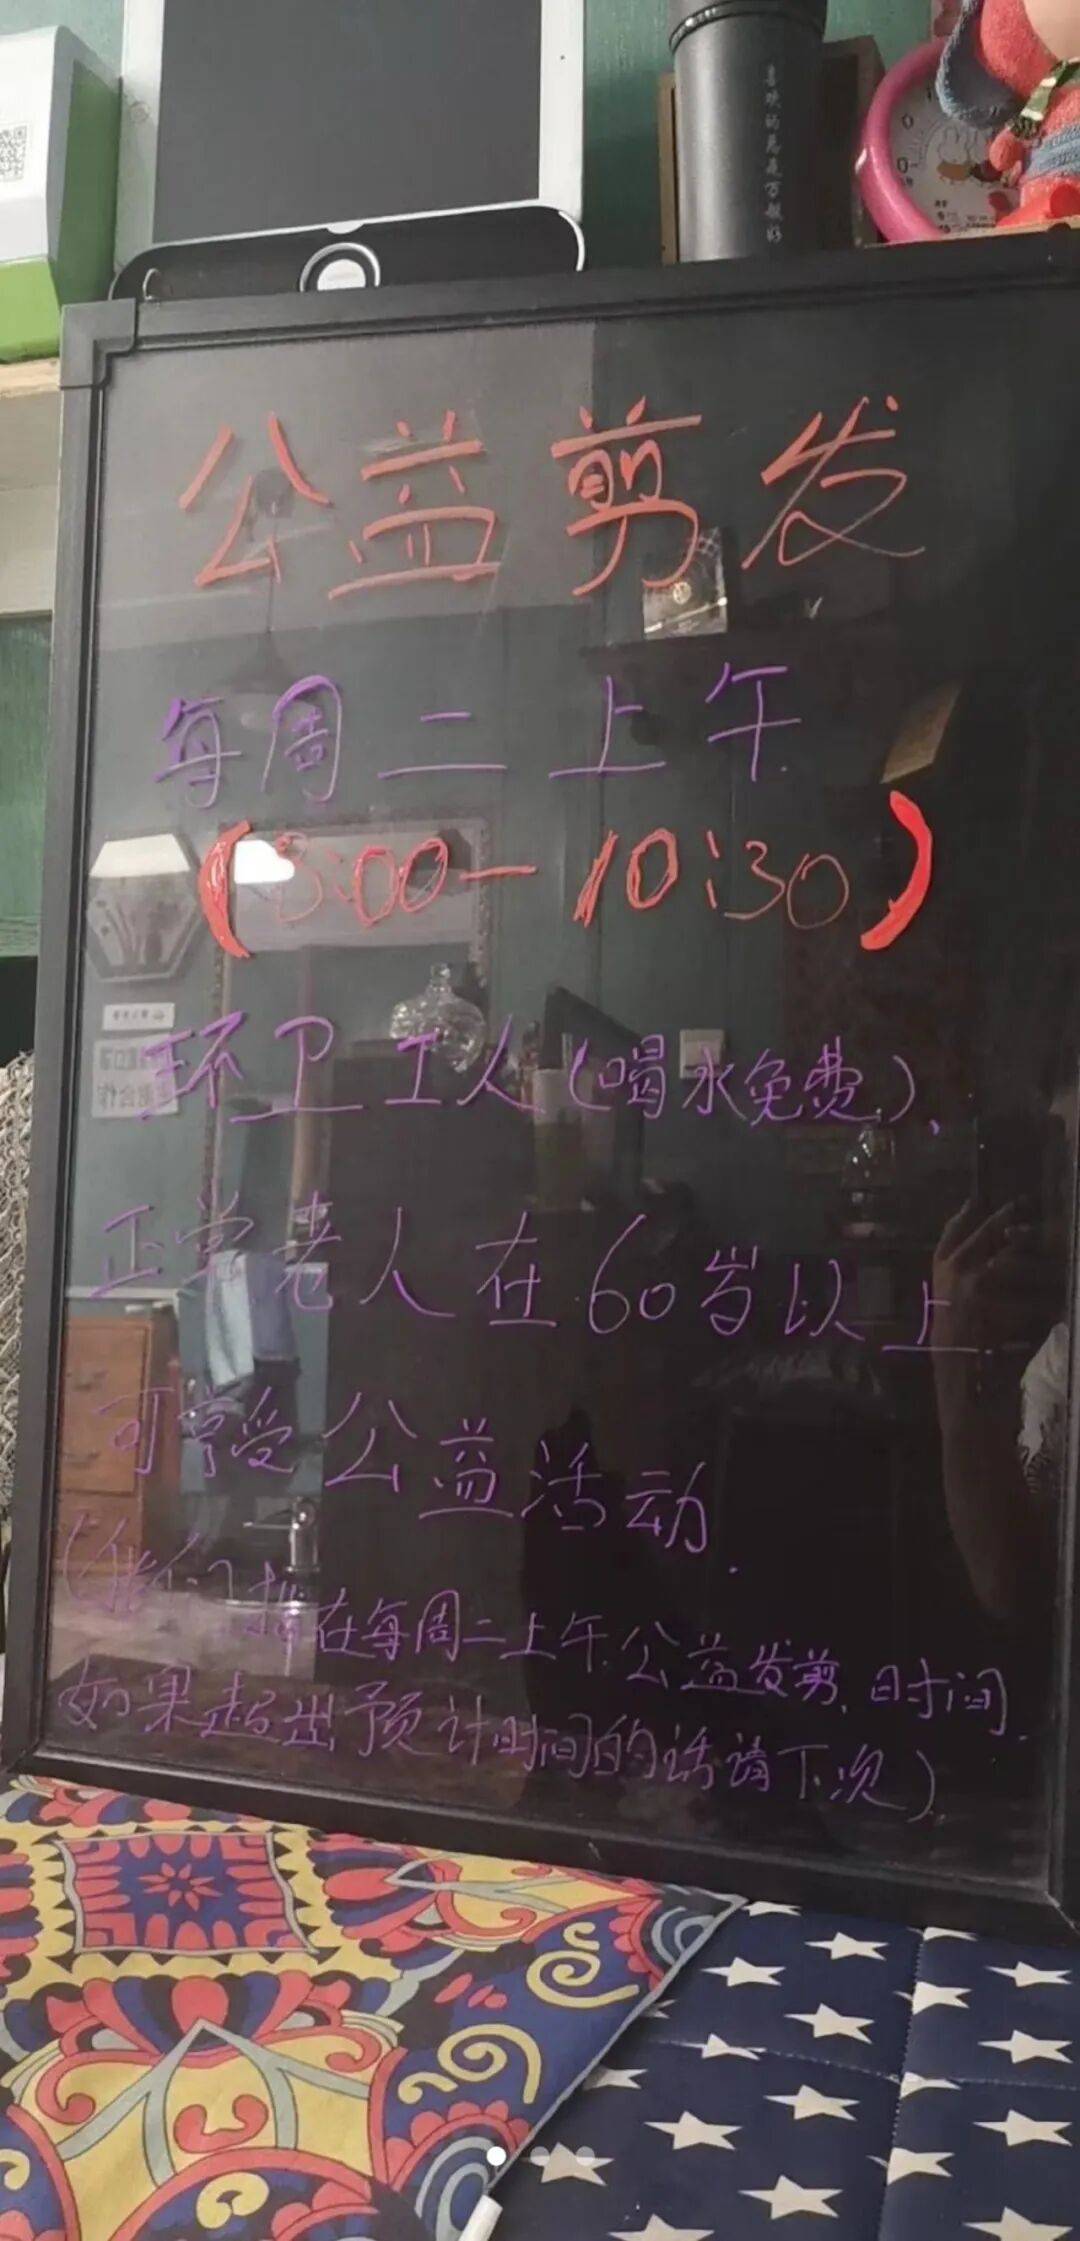 喜欢的总是万般好
公益剪发
每周二上午
(8:00—10:30)
环卫工人(喝水免费)、
正常老人在60岁以上
可享受公益活动.
在每周二上午公益发剪,时间
如果超出预计时间的话请下次)